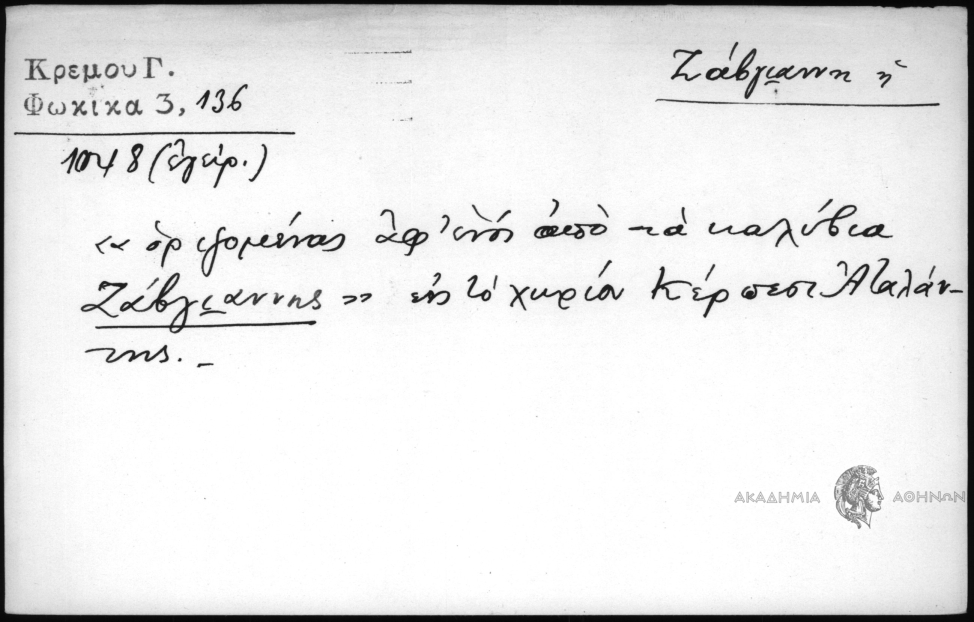 Κρεμου Γ.
Φωκικα 3, 136
Ζάβγιαννη ἡ
1048 (ἐγειρ.)
«ὁριζομένας ἀφ' ἑνὸς ἀπὸ τὰ καλύβια
Ζάβγιαννης» εἰς τὸ χωρίον Κέρπεσι Ἀταλάν-
της. _
ΑΚΑΔΗΜΙΑ ΑΘΗΝΩΝ